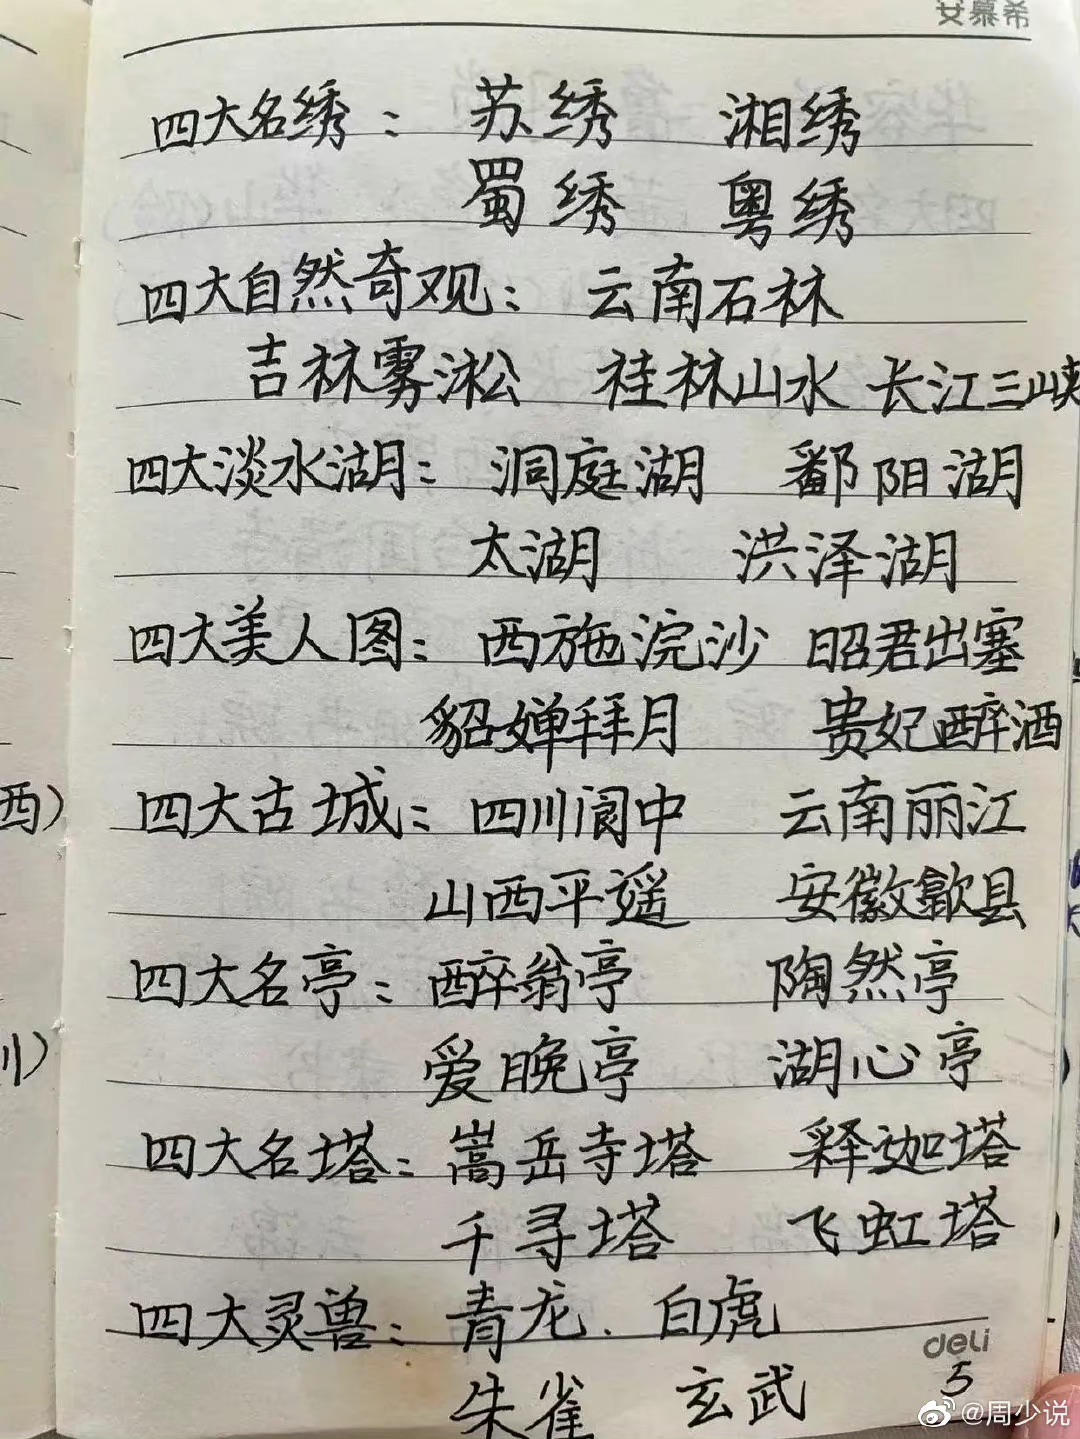 安慕希
四大名绣：苏绣 湘绣
蜀绣 粤绣
四大自然奇观：云南石林
吉林雾淞 桂林山水 长江三峡
四大淡水湖：洞庭湖 鄱阳湖
太湖 洪泽湖
四大美人图：西施浣沙 昭君出塞
貂婵拜月 贵妃醉酒
西）
四大古城：四川阆中 云南丽江
山西平遥 安徽歙县
四大名亭：醉翁亭 陶然亭
川）
爱晚亭 湖心亭
四大名塔：嵩岳寺塔 释迦塔
千寻塔 飞虹塔
四大灵兽：青龙．白虎
deli
朱雀 玄武
5
@周少说